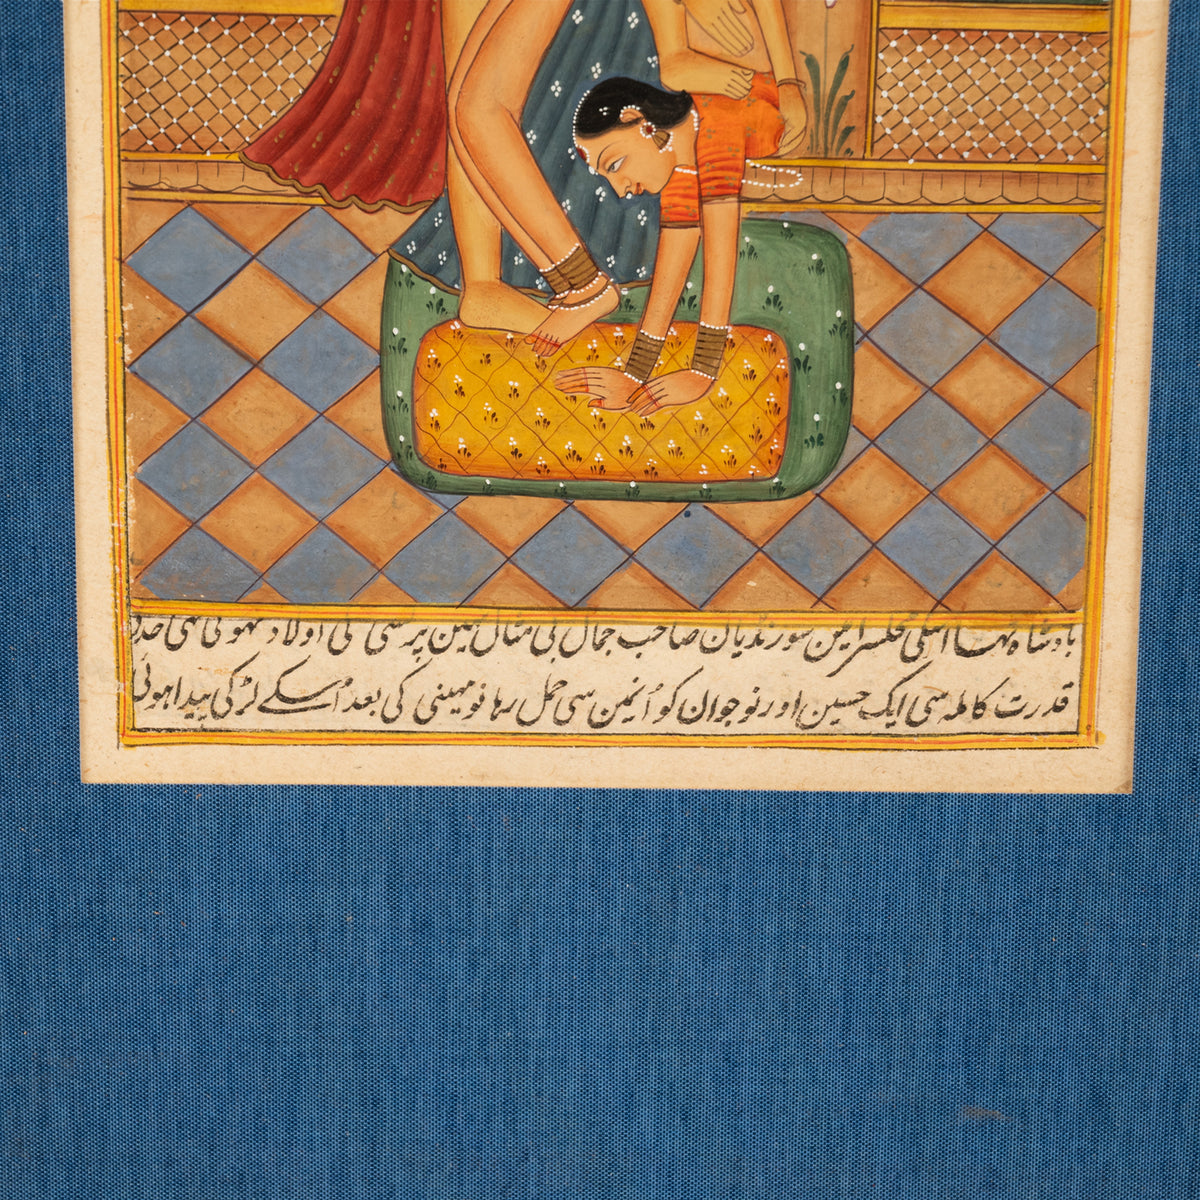 بادشاہ تھا اسکی محلسرا مین سو رنڈیان صاحب جمال بی مثال تہین پر کسی کی اولاد نہوئی تھی
قدرت کاملہ سی ایک حسین اور نوجوان کو اُنمین سی حمل رہا نو مہینی کی بعد اُسکے لڑکی پیدا ہوئی